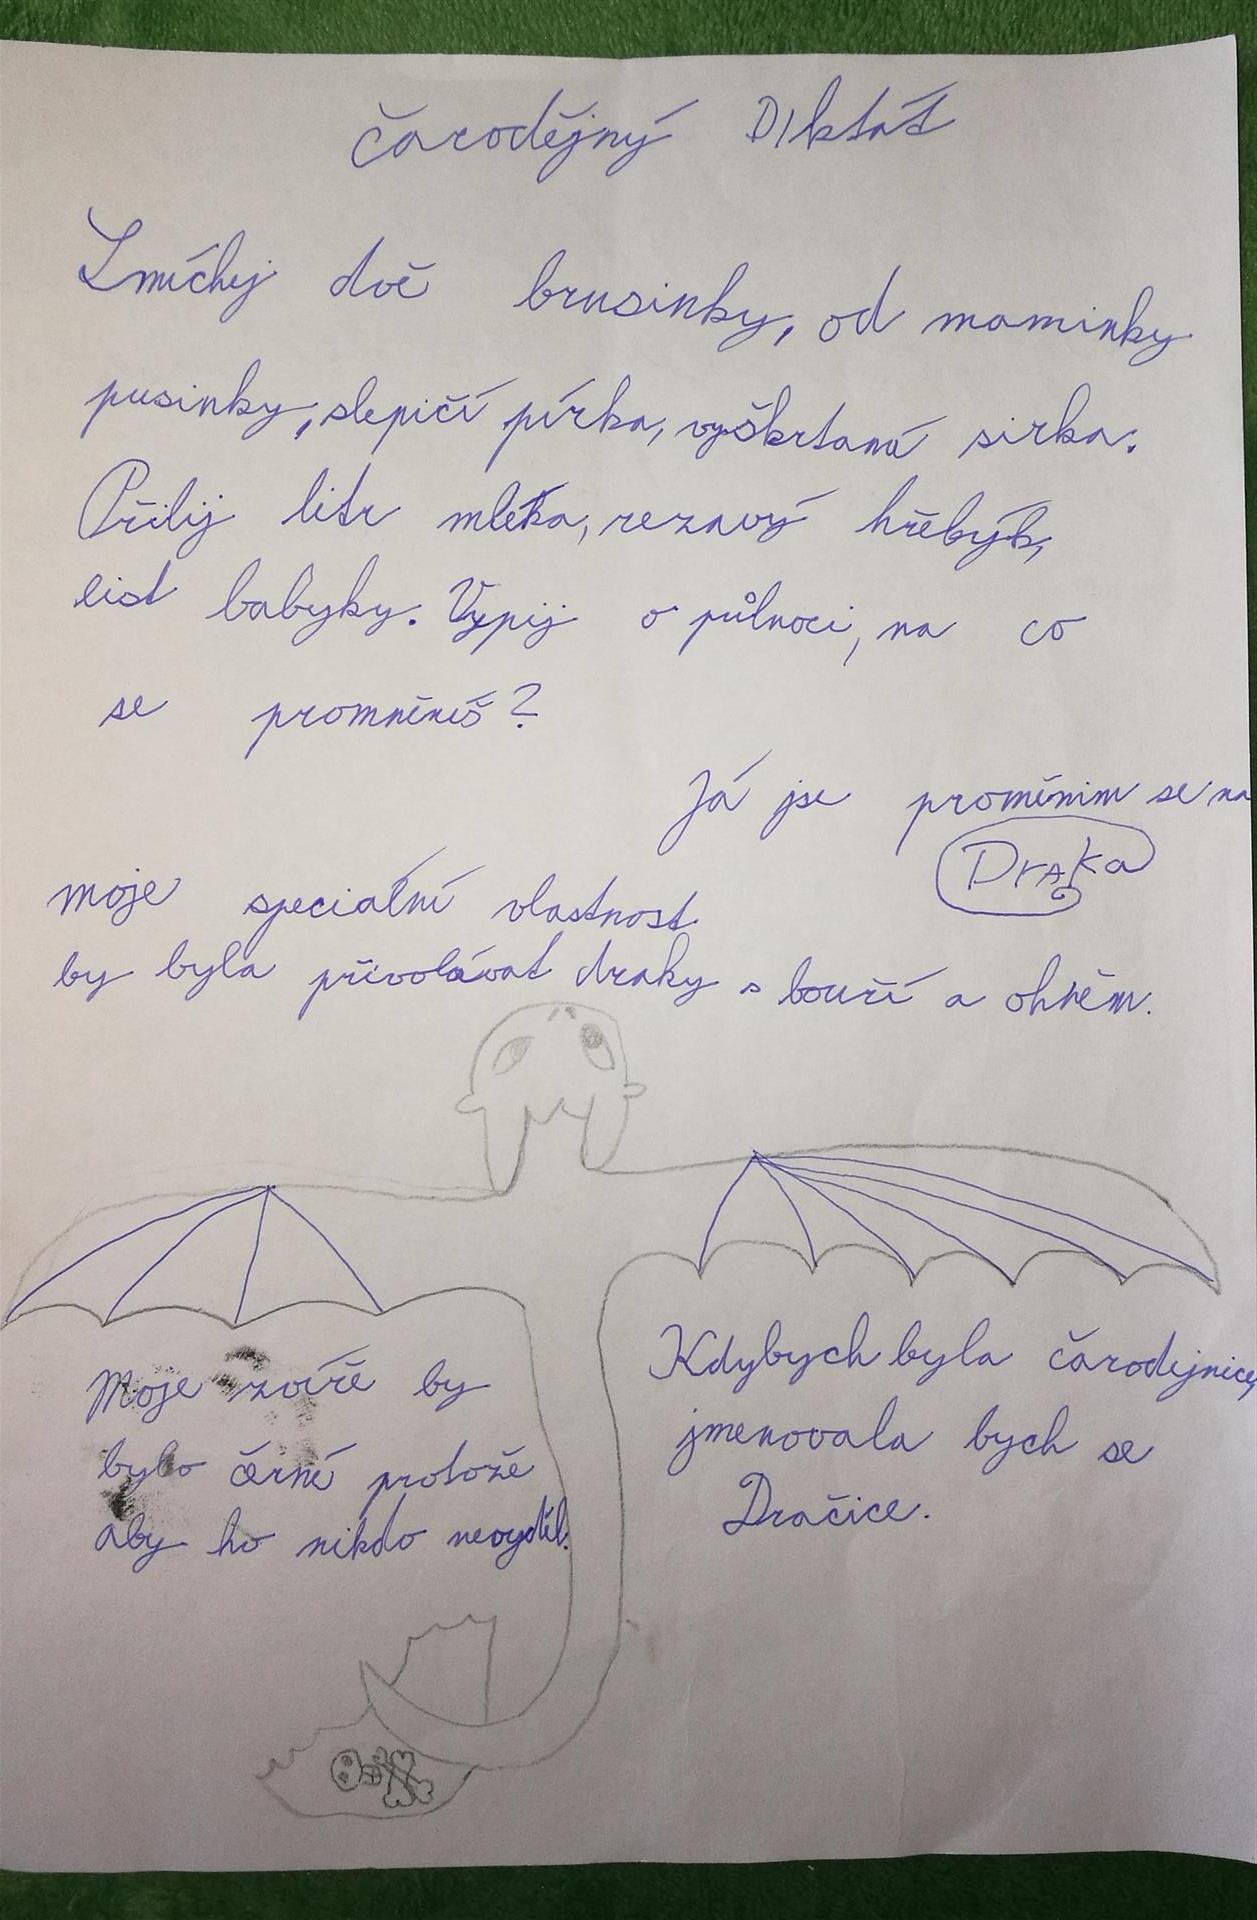 čarodějný Diktát
Smíchej dvě brusinky, od maminky
pusinky, slepičí pírka, vyškrtaná sirka.
Přilij litr mléka, rezavý hřebýk,
list babyky. Vypij o půlnoci, na co
se promněníš?
Já jse proměnim se na
Draka
moje speciální vlastnost
by byla přivolávat draky s bouří a ohněm.
Moje zvíře by
bylo černé protože
aby ho nikdo nevyděl.
Kdybych byla čarodejnice,
jmenovala bych se
Dračice.